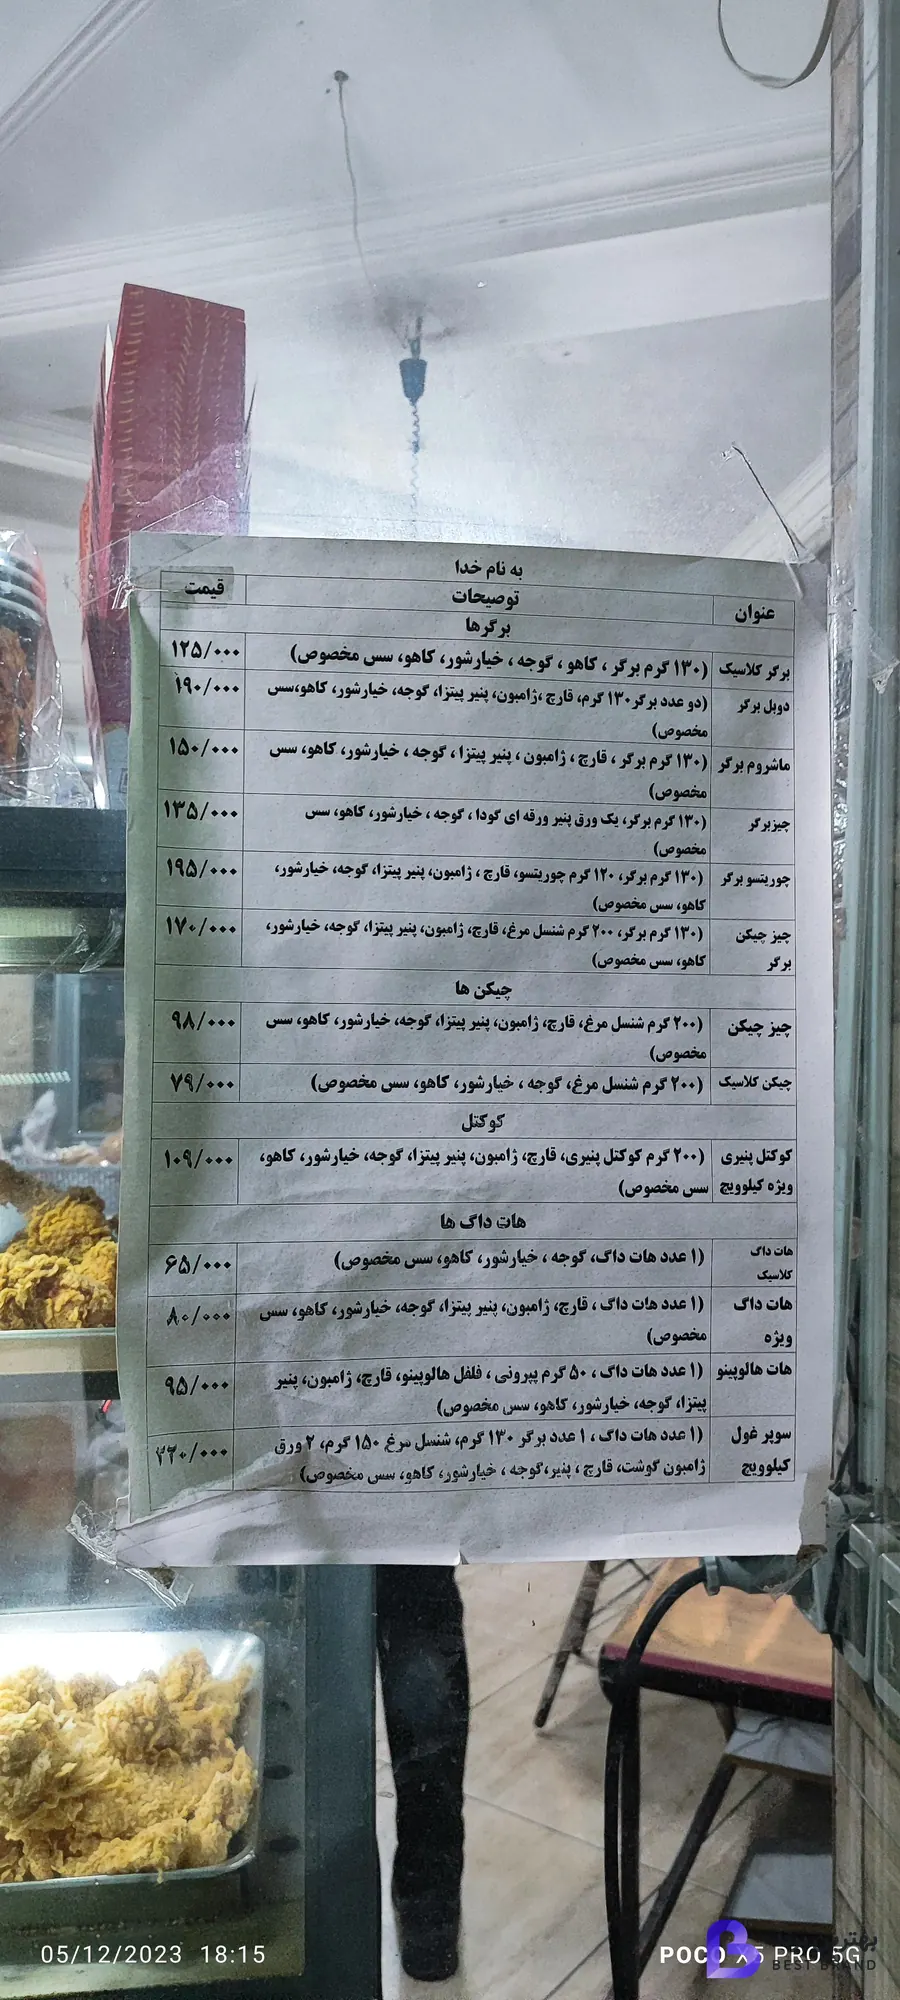 به نام خدا
عنوان توصیحات قیمت
برگرها
برگر کلاسیک (۱۳۰ گرم برگر ، کاهو ، گوجه ، خیارشور، کاهو، سس مخصوص) ۱۲۵/۰۰۰
دوبل برگر (دو عدد برگر۱۳۰ گرم، قارچ ،ژامبون، پنیر پیتزا، گوجه، خیارشور، کاهو،سس ۱۹۰/۰۰۰
مخصوص)
ماشروم برگر (۱۳۰ گرم برگر ، قارچ ، ژامبون ، پنیر پیتزا ، گوجه ، خیارشور، کاهو، سس ۱۵۰/۰۰۰
مخصوص)
چیزبرگر (۱۳۰ گرم برگر، یک ورق پنیر ورقه ای گودا ، گوجه ، خیارشور، کاهو، سس ۱۳۵/۰۰۰
مخصوص)
چوریتسو برگر (۱۳۰ گرم برگر، ۱۲۰ گرم چوریتسو، قارچ ، ژامبون، پنیر پیتزا، گوجه، خیارشور، ۱۹۵/۰۰۰
کاهو، سس مخصوص)
چیز چیکن (۱۳۰ گرم برگر، ۲۰۰ گرم شنسل مرغ، قارچ، ژامبون، پنیر پیتزا، گوجه، خیارشور، ۱۷۰/۰۰۰
برگر کاهو، سس مخصوص)
چیکن ها
چیز چیکن (۲۰۰ گرم شنسل مرغ، قارچ، ژامبون، پنیر پیتزا، گوجه، خیارشور، کاهو، سس ۹۸/۰۰۰
مخصوص)
چیکن کلاسیک (۲۰۰ گرم شنسل مرغ، گوجه ، خیارشور، کاهو، سس مخصوص) ۷۹/۰۰۰
کوکتل
کوکتل پنیری (۲۰۰ گرم کوکتل پنیری، قارچ، ژامبون، پنیر پیتزا، گوجه، خیارشور، کاهو، ۱۰۹/۰۰۰
ویژه کیلوویچ سس مخصوص)
هات داگ ها
هات داگ (۱ عدد هات داگ، گوجه ، خیارشور، کاهو، سس مخصوص) ۶۵/۰۰۰
کلاسیک
هات داگ (۱ عدد هات داگ ، قارچ، ژامبون، پنیر پیتزا، گوجه، خیارشور، کاهو، سس ۸۰/۰۰۰
ویژه مخصوص)
هات هالوپینو (۱ عدد هات داگ ، ۵۰ گرم پپرونی ، فلفل هالوپینو، قارچ، ژامبون، پنیر ۹۵/۰۰۰
پیتزا، گوجه، خیارشور، کاهو، سس مخصوص)
سوپر غول (۱ عدد هات داگ ، ۱ عدد برگر ۱۳۰ گرم، شنسل مرغ ۱۵۰ گرم، ۲ ورق
کیلوویچ ژامبون گوشت، قارچ ، پنیر،گوجه ، خیارشور، کاهو، سس مخصوص)
05/12/2023 18:15
POCO X5 PRO 5G
BEST BRAND